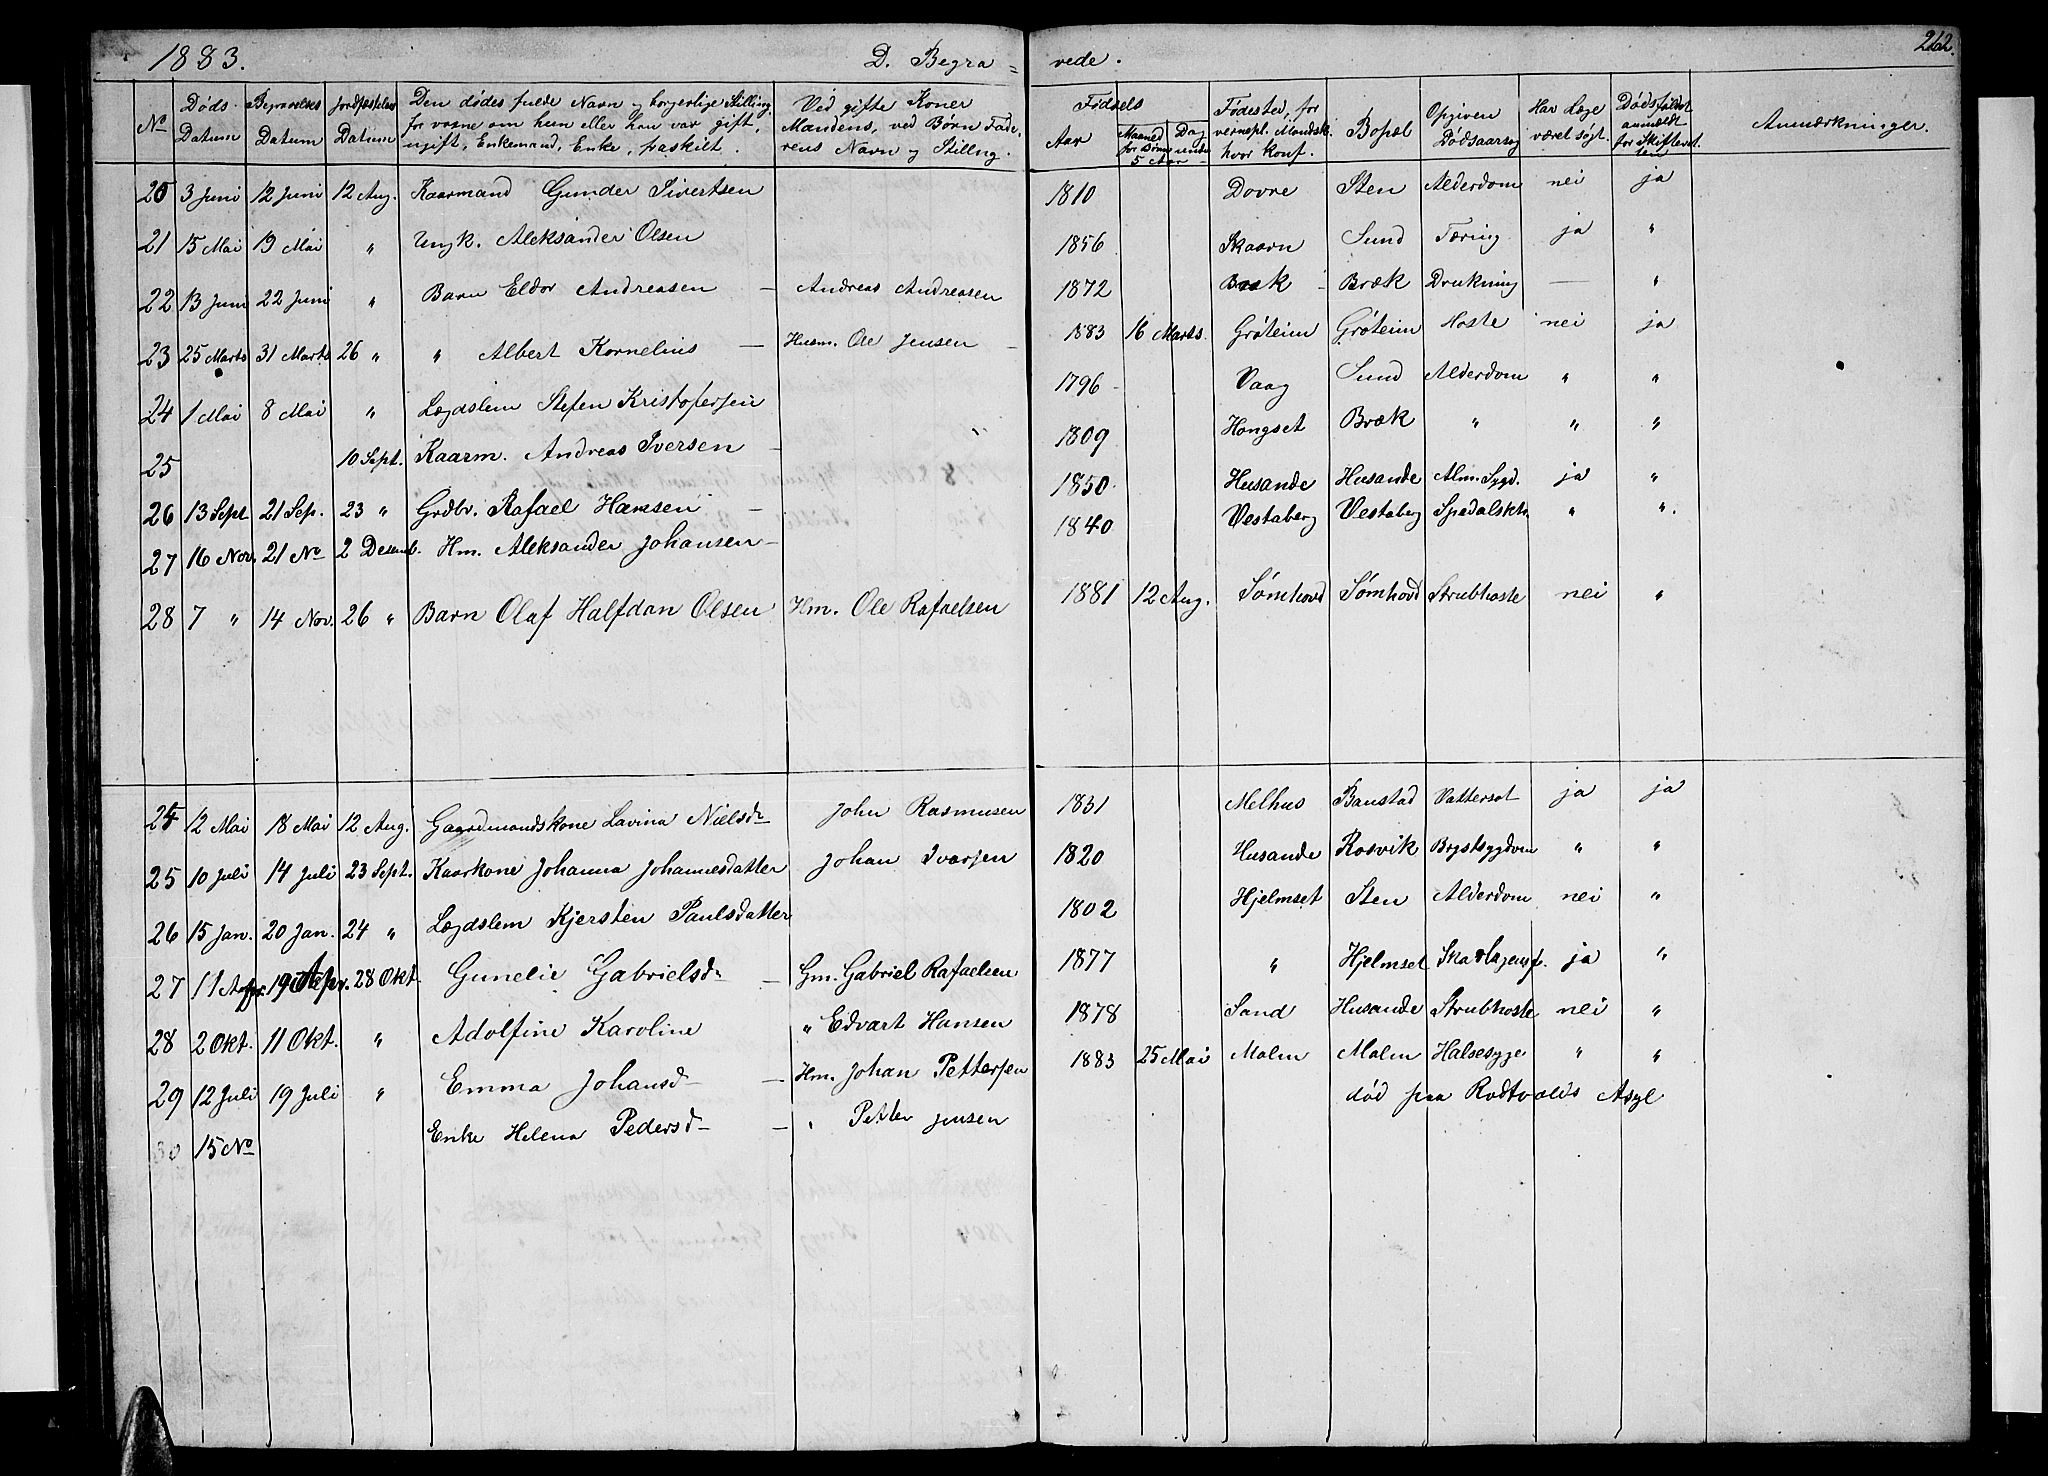 1883. D. Begra = vede. 262.
No Døds Datum Begravelses Datum Jordfæstelses Datum Den dødes fulde Navn og borgerlige Stilling, for voxne om hun eller han var gift, ugift, Enkemand, Enke, fraskilt. Ved gifte Koner Mandens, ved Børn Faderens Navn og Stilling. Fødsels Aar Maaned Dag for Børn under 5 Aar Fødested, for vernepl. Mandsk. hvor konf. Bopæl Opgiven Dødsaarsag Har Læge været søgt. Dødsfaldet anmeldt for Skifteretten Anmærkninger.
20 3 Juni 12 Juni 12 Aug. Kaarmand Gunder Sivertsen 1810 Dovre Sten Alderdom nei ja
21 15 Mai 19 Mai " Ungk. Aleksander Olsen 1856 Skaarn Sund Tæring ja "
22 13 Juni 22 Juni " Barn Eldor Andreasen — Andreas Andreasen 1872 Bræk Bræk Drukning — "
23 25 Marts 31 Marts 26 " " Albert Kornelius — Husm. Ole Jensen 1883 16 Marts. Grøteim Grøteim Hoste nei ja
24 1 Mai 8 Mai " Lægdslem Stefen Kristofersen 1796 Vaag Sund Alderdom " "
25 10 Sept. Kaarm. Andreas Iversen — 1809 Hongset Bræk " " "
26 13 Sept 21 Sep. 23 " Grdbr. Rafael Hansen — 1850 Husande Husande Alm. Sygd. ja "
27 16 Nov. 21 No 2 Desemb. Hm. Aleksander Johansen — 1840 Vestaberg Vestaberg Spedalskh. " "
28 7 " 14 Nov. 26 " Barn Olaf Halfdan Olsen Hm. Ole Rafaelsen 1881 12 Aug. Sømhovd Sømhovd Strubhoste nei "
24 12 Mai 18 Mai 12 Aug. Gaardmandskone Lavina Nielsd John Rasmusen 1831 Melhus Banstad Vattersot ja ja
25 10 Juli 14 Juli 23 Sept. Kaarkone Johanna Johannesdatter Johan Ivarsen 1820 Husande Rosvik Brystsygdom " "
26 15 Jan. 20 Jan. 24 " Lægdslem Kjersten Paulsdatter 1802 Hjelmset Sten Alderdom nei "
27 11 Apr. 19 Apr. 28 Okt. Gunelie Gabrielsd — Gm. Gabriel Rafaelsen 1877 " Hjelmset ja "
28 2 Okt. 11 Okt. " Adolfine Karoline " Edvart Hansen 1878 Sand Husande Strubhoste nei "
29 12 Juli 19 Juli " Emma Johansd — Hm. Johan Pettersen 1883 25 Mai Malm Malm Halsesyge " "
30 15 No Enke Helena Pedersd — " Petter Jensen død paa Rødtvolds Asyl